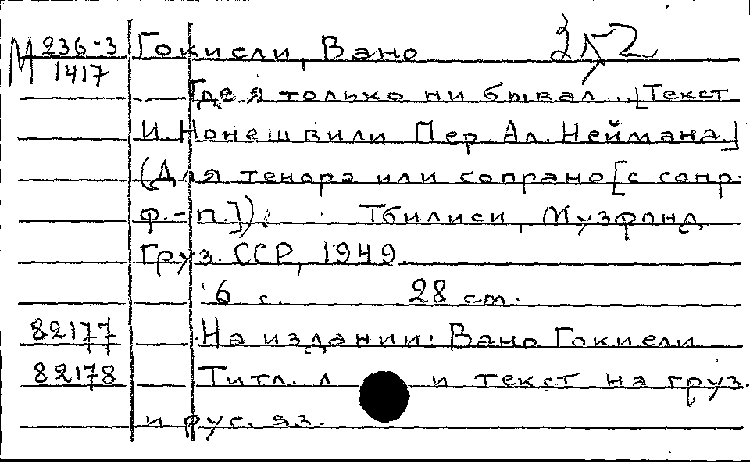 М 236-3 Гокиели, Вано 352
1417
Где я только ни бывал... [Текст
И. Нонешвили Пер. Ал. Неймана.]
(Для тенора или сопрано [с сопр.
ф.-п.]). Тбилиси, Музфонд
Груз. ССР, 1949
6 с. 28 cm.
82177 На издании: Вано Гокиели
82178 Титл. л и текст на груз.
и рус. яз.